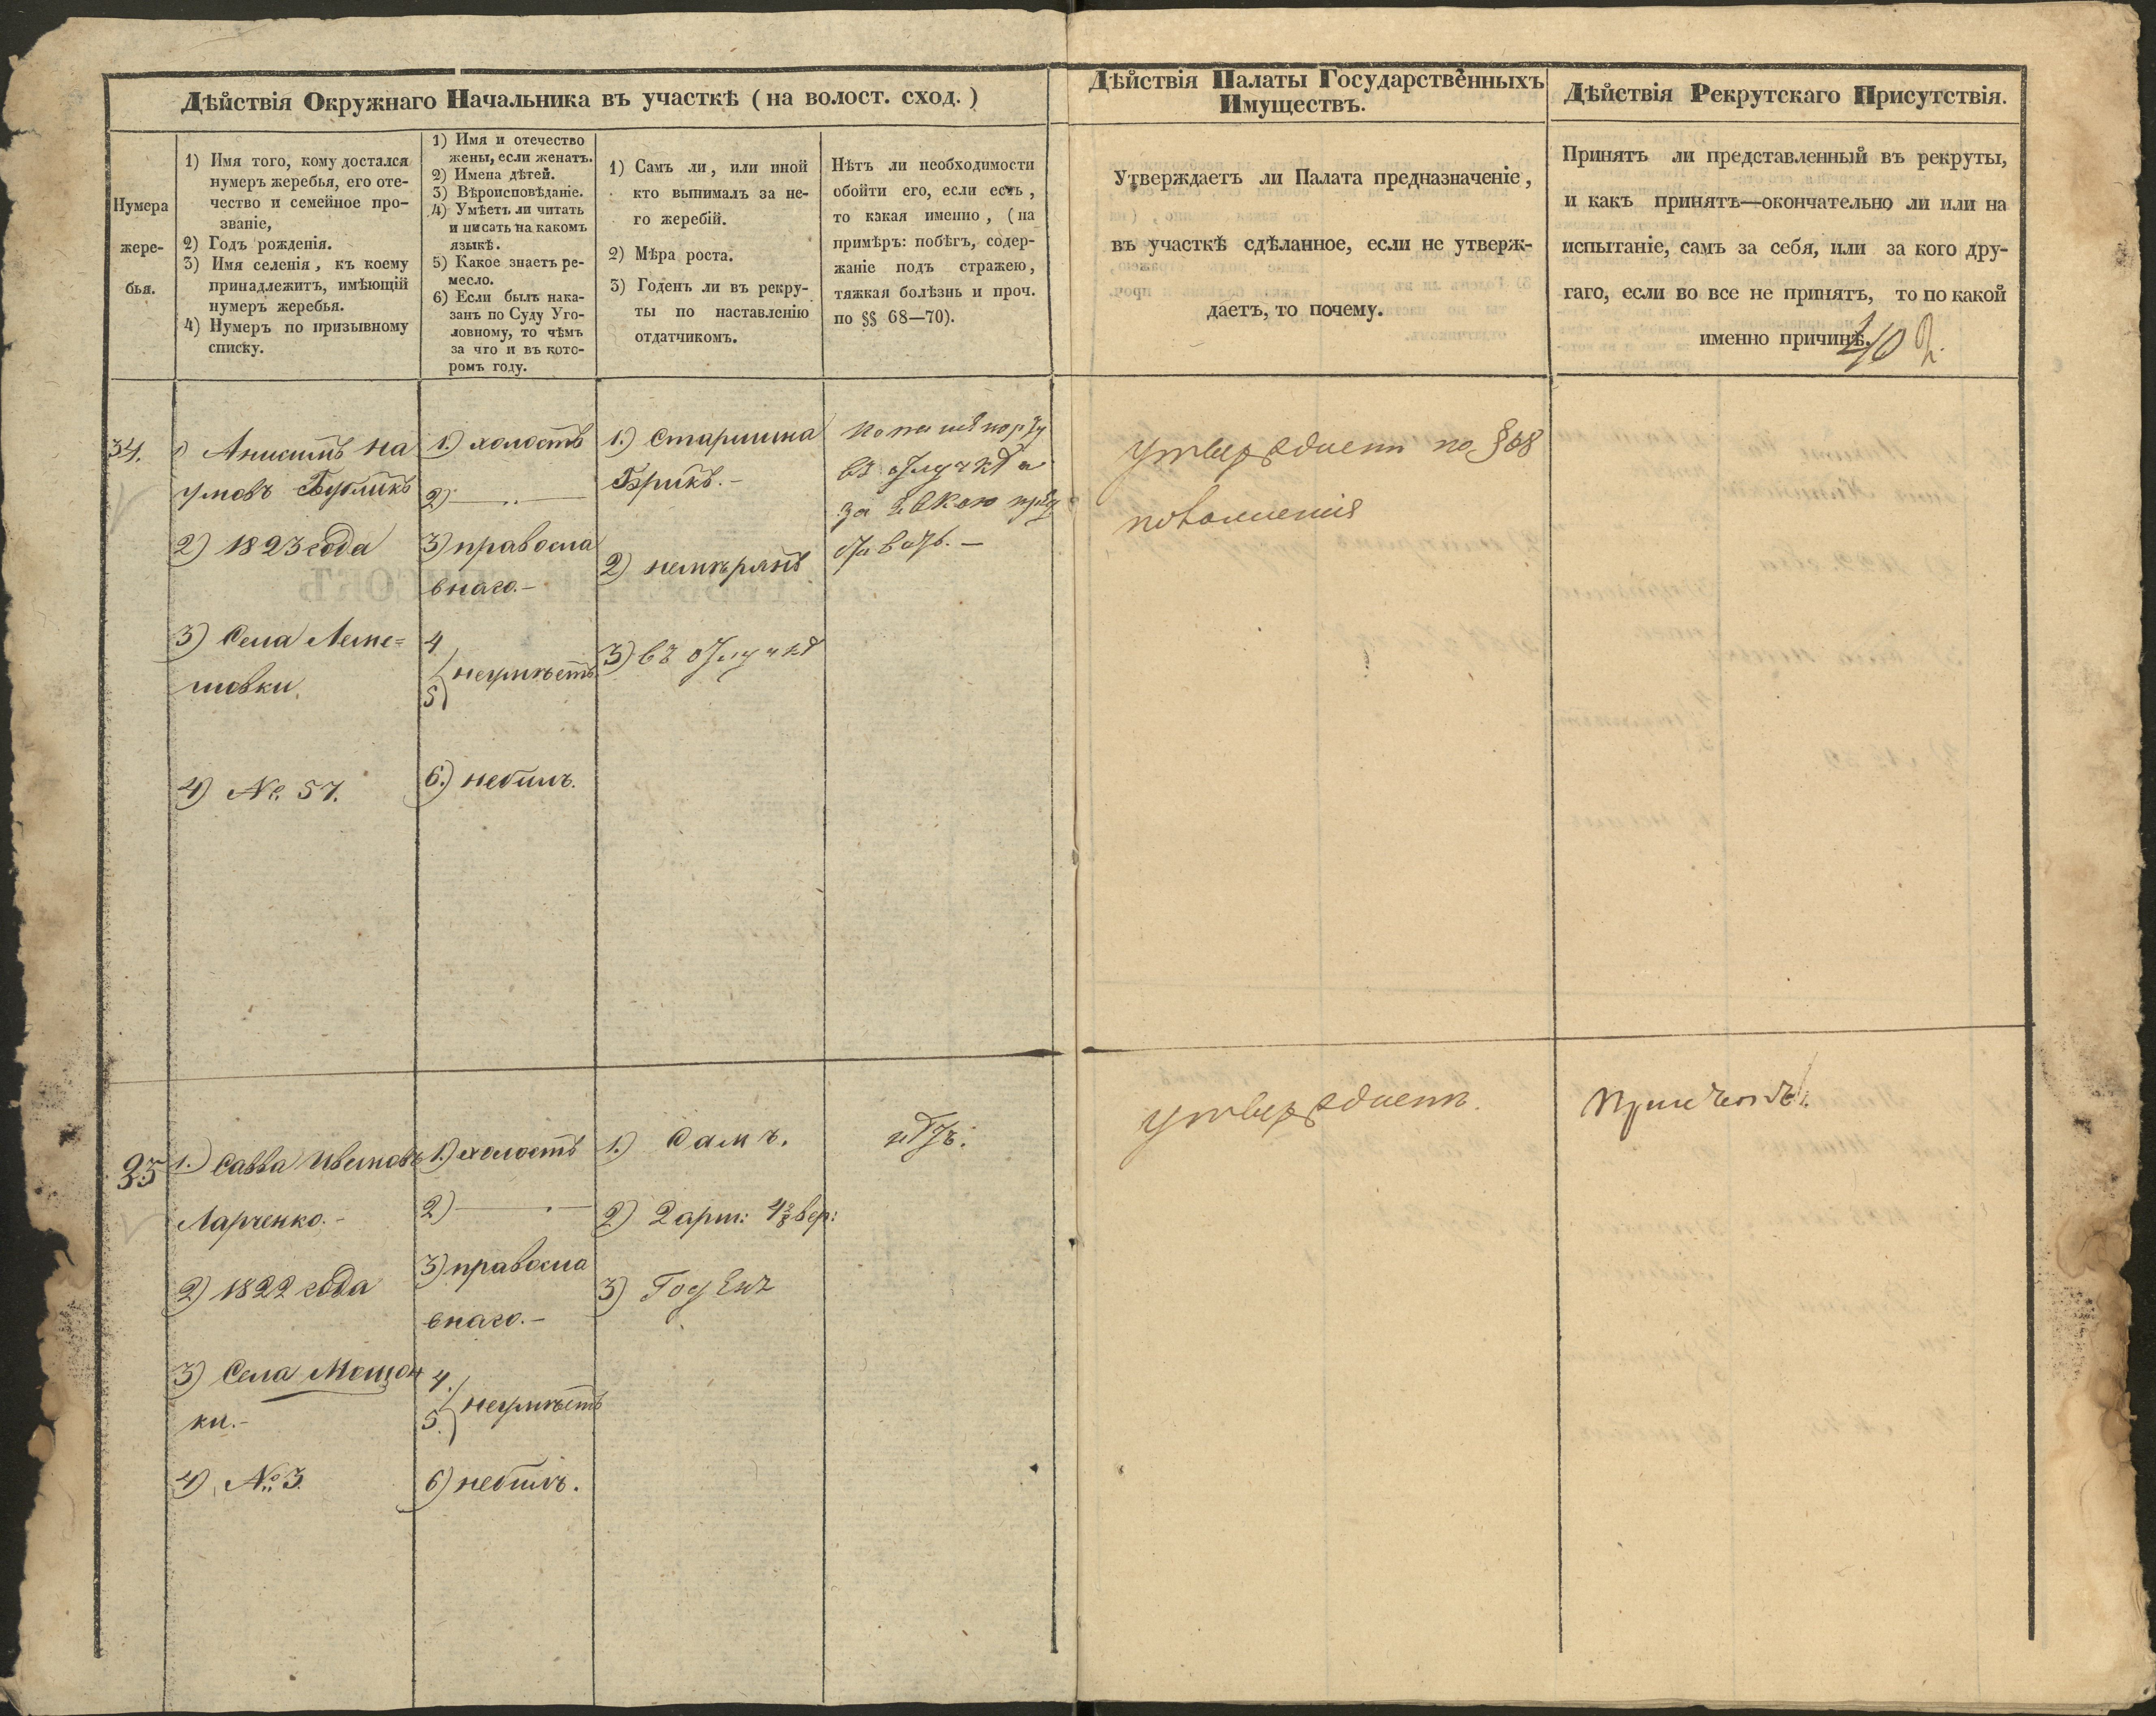 Дѣйствія Окружнаго Начальника въ участкѣ (на волост. сход.)
Нумера
жере-
бья.
1) Имя того, кому достался
нумеръ жеребья, его оте-
чество и семейное про-
званіе,
2) Годъ рожденія.
3) Имя селенія, къ коему
принадлежитъ, имѣющій
нумеръ жеребья.
4) Нумеръ по призывному
списку.
1) Имя и отечество
жены, если женатъ.
2) Имена дѣтей.
3) Вѣроисповѣданіе.
4) Умѣетъ ли читать
и писать на какомъ
языкѣ.
5) Какое знаетъ ре-
месло.
6) Если былъ нака-
занъ по Суду Уго-
ловному, то чѣмъ
за что и въ кото-
ромъ году.
1) Самъ ли, или иной
кто вынималъ за не-
го жеребій.
2) Мѣра роста.
3) Годенъ ли въ рекру-
ты по наставленію
отдатчикомъ.
Нѣтъ ли необходимости
обойти его, если есть,
то какая именно, (на
примѣръ: побѣгъ, содер-
жаніе подъ стражею,
тяжкая болѣзнь и проч.
по §§ 68—70).
Дѣйствія Палаты Государственныхъ
Имуществъ.
Утверждаетъ ли Палата предназначеніе,
въ участкѣ сдѣланное, если не утверж-
даетъ, то почему.
Дѣйствія Рекрутскаго Присутствія.
Принятъ ли представленный въ рекруты,
и какъ принятъ—окончательно ли или на
испытаніе, самъ за себя, или за кого дру-
гаго, если во все не принятъ, то по какой
именно причинѣ.
34.
1) Анисимъ На
умовъ Бубликъ
2) 1823 года
3) Села Леме=
шовки.
4) №. 57.
1.) холостъ
2) —
3) правосла
внаго.—
4
5) неумѣетъ
6.) небылъ.
1.) Старшина
Брикъ.—
2) немѣрянъ
3) въ отлучкѣ
въ отлучкѣ
утверждаетъ по § 68
35
1.) Савва Ивановъ
Ларченко.—
2) 1822 года
3) Села Мощон
ки.—
4) №. 3.
1.) холостъ
2) —
3) правосла
внаго.—
4.
5.) неумѣетъ
6) небылъ.
1.) Самъ.
2) 2 арш: 4⅜ вер:
3) Годенъ
нѣтъ.
утверждаетъ.